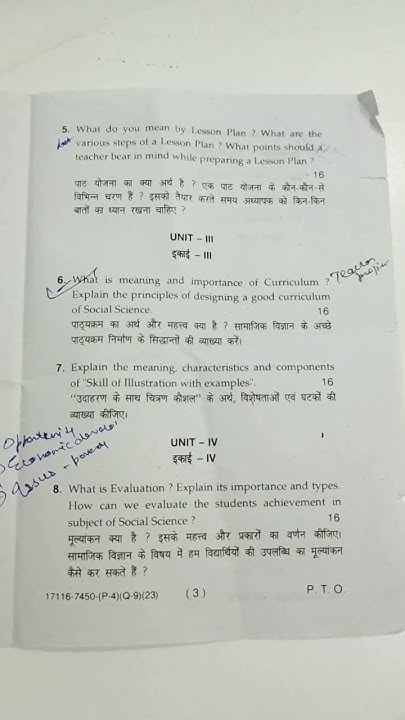 5. What do you mean by Lesson Plan ? What are the
various steps of a Lesson Plan ? What points should a
teacher bear in mind while preparing a Lesson Plan ?
16
पाठ योजना का क्या अर्थ है ? एक पाठ योजना के कौन-कौन-से
विभिन्न चरण हैं ? इसको तैयार करते समय अध्यापक को किन-किन
बातों का ध्यान रखना चाहिए ?
UNIT – III
इकाई – III
6. What is meaning and importance of Curriculum ?
Explain the principles of designing a good curriculum
of Social Science. 16
पाठ्यक्रम का अर्थ और महत्त्व क्या है ? सामाजिक विज्ञान के अच्छे
पाठ्यक्रम निर्माण के सिद्धान्तों की व्याख्या करें।
7. Explain the meaning, characteristics and components
of "Skill of Illustration with examples". 16
"उदाहरण के साथ चित्रण कौशल" के अर्थ, विशेषताओं एवं घटकों की
व्याख्या कीजिए।
UNIT – IV
इकाई – IV
8. What is Evaluation ? Explain its importance and types.
How can we evaluate the students achievement in
subject of Social Science ? 16
मूल्यांकन क्या है ? इसके महत्त्व और प्रकारों का वर्णन कीजिए।
सामाजिक विज्ञान के विषय में हम विद्यार्थियों की उपलब्धि का मूल्यांकन
कैसे कर सकते हैं ?
17116-7450-(P-4)(Q-9)(23) ( 3 ) P. T. O.